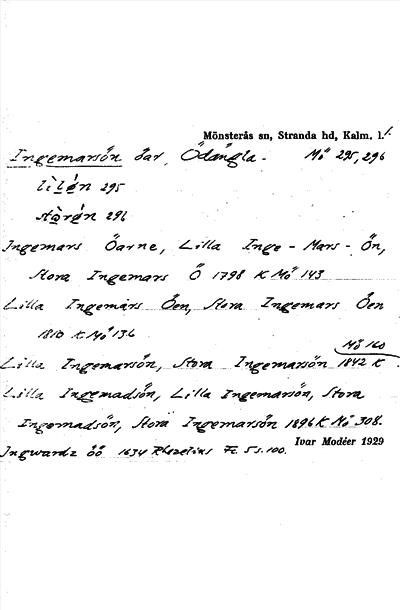 Mönsterås sn, Stranda hd, Kalm. l.
Ingemarsön öar, Ödängla. Mö 295, 296
lìlǿn 295
stòrǿn 296
Ingemars Öarne, Lilla Inge-Mars-Ön,
Stora Ingemars Ö 1798 K Mö 143
Lilla Ingemars Öen, Stora Ingemars Öen
1810 K Mö 136
Mö 160
Lilla Ingemarsön, Stora Ingemarsön 1842 K
Lilla Ingemadsön, Lilla Ingemarsön, Stora
Ingemadsön, Stora Ingemarsön 1896 K Mö 308.
Ivar Modéer 1929
Ingwardz öö 1634 Rhezelius Fc 5 s. 100.